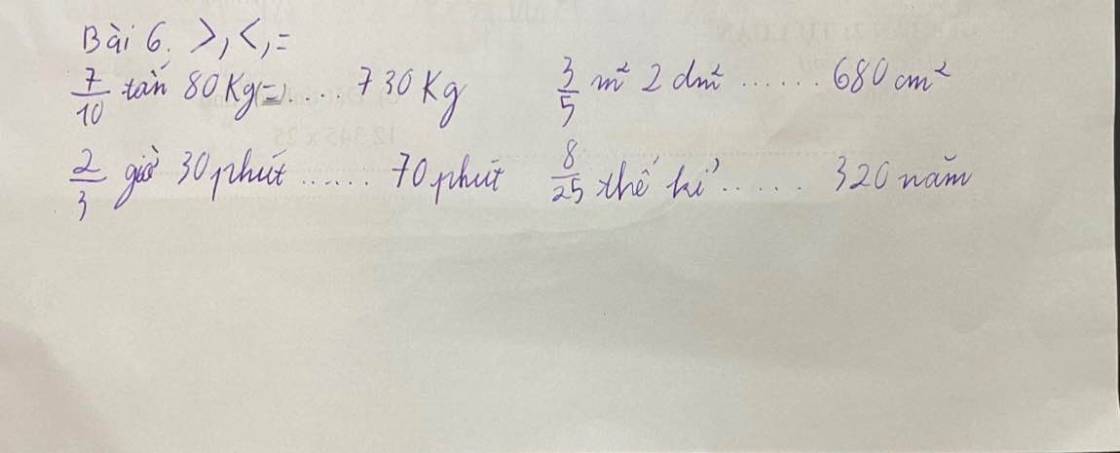 Bài 6. >, <, =
7/10 tấn 80 Kg(=)..... 730 Kg 3/5 m² 2 dm² ...... 680 cm²
2/3 giờ 30 phút ...... 70 phút 8/25 thế kỉ ...... 320 năm